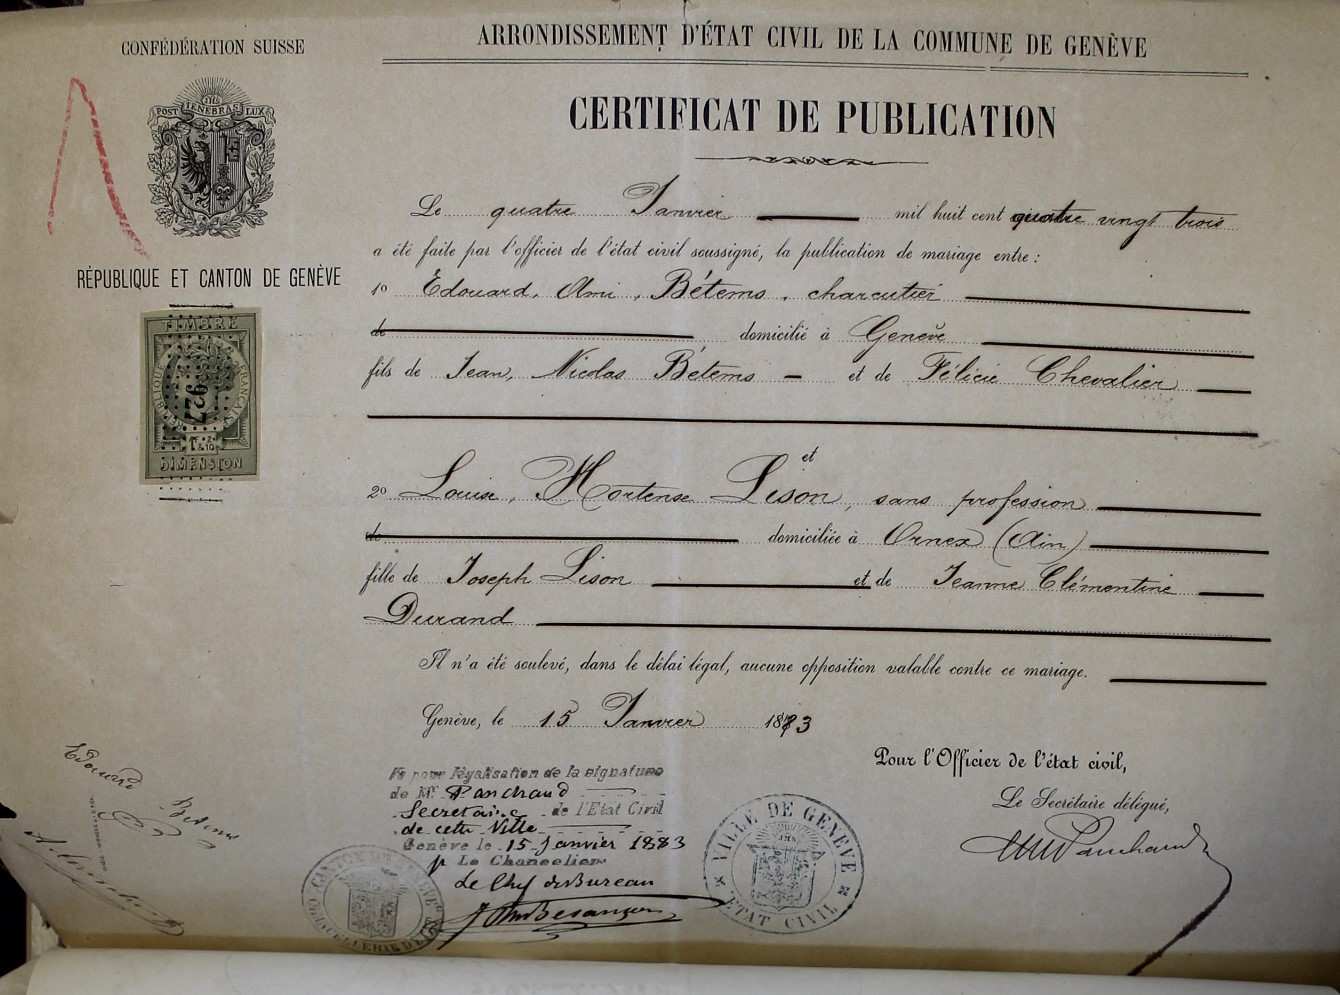 CONFÉDÉRATION SUISSE
POST TENEBRAS LUX
RÉPUBLIQUE ET CANTON DE GENÈVE
TIMBRE
RÉPUBLIQUE FRANÇAISE
927
DIMENSION
ARRONDISSEMENT D'ÉTAT CIVIL DE LA COMMUNE DE GENÈVE
CERTIFICAT DE PUBLICATION
Le quatre Janvier mil huit cent quatre vingt trois
a été faite par l'officier de l'état civil soussigné, la publication de mariage entre :
1º Edouard, Ami, Bétems, charcutier
de domicilié à Genève
fils de Jean, Nicolas Bétems — et de Félicie Chevalier
et
2º Louise, Hortense Lison, sans profession
de domiciliée à Ornex (Ain)
fille de Joseph Lison et de Jeanne Clémentine
Durand
Il n'a été soulevé, dans le délai légal, aucune opposition valable contre ce mariage.
Genève, le 15 Janvier 1883
Pour l'Officier de l'état civil,
Le Secrétaire délégué,
Panchaud
Vu pour légalisation de la signature
de Mr. Panchaud
Secretaire de l'Etat Civil
de cette Ville
Genève le 15 janvier 1883
p Le Chancelier
Le Chef de Bureau
VILLE DE GENÈVE
ETAT CIVIL
Edouard Betems